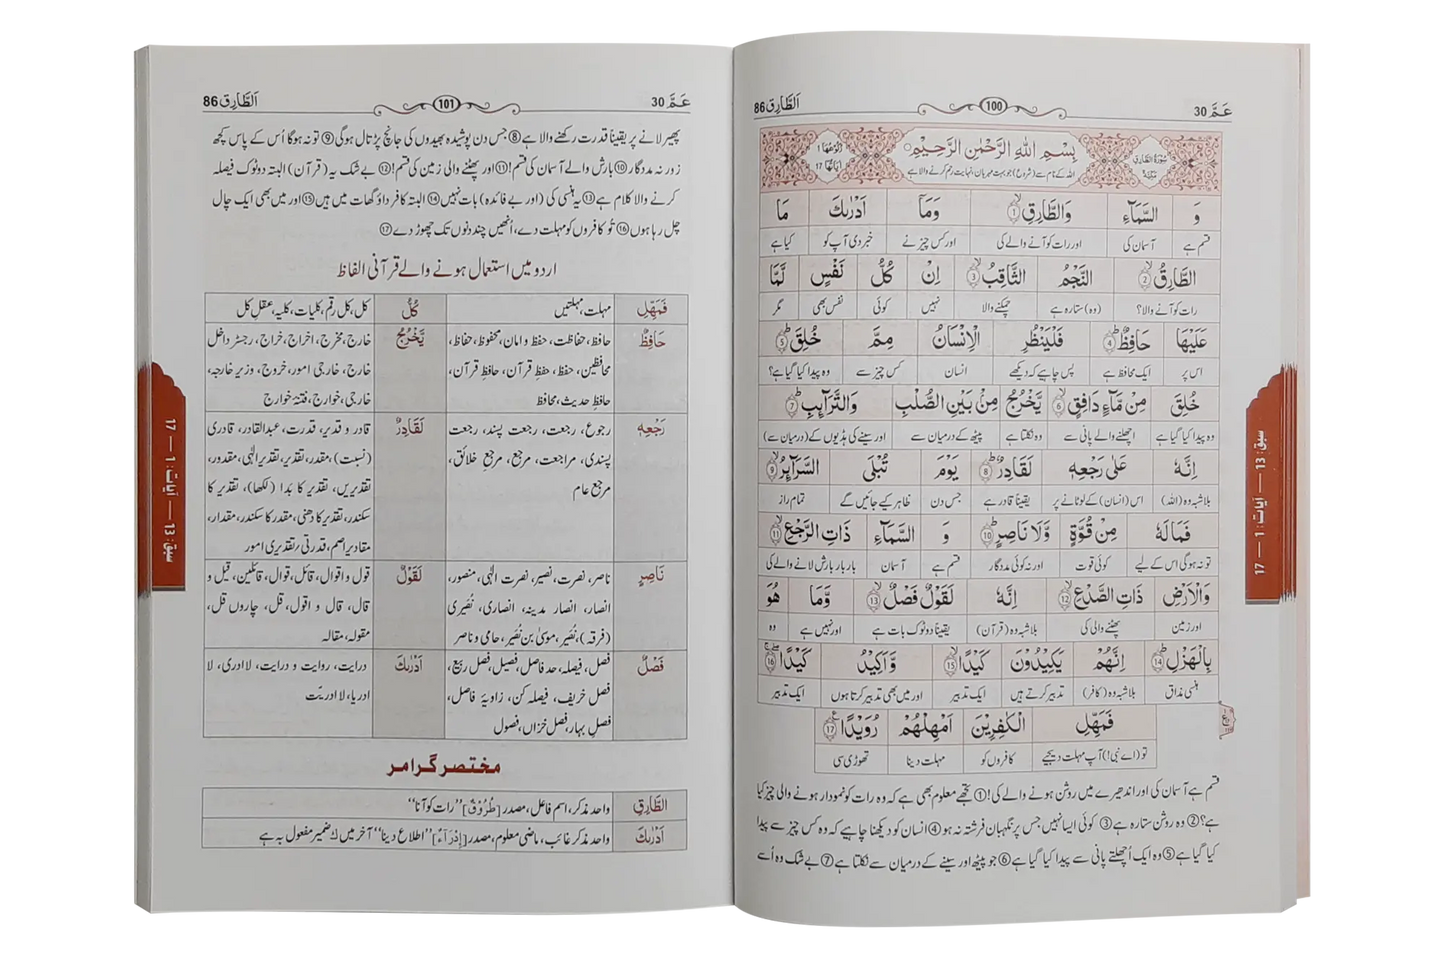 عَمَّ 30
100
اَلطَّارِق 86
سُورَةُ الطَّارِقِ مَكِّيَّةٌ
بِسْمِ اللهِ الرَّحْمٰنِ الرَّحِيْمِ
رُكُوْعُهَا 1
اٰيَاتُهَا 17
اللہ کے نام سے (شروع) جو بہت مہربان، نہایت رحم کرنے والا ہے
وَ السَّمَآءِ وَالطَّارِقِ ① وَمَآ اَدْرٰىكَ مَا
قسم ہے آسمان کی اور رات کو آنے والے کی اور کس چیز نے خبر دی آپ کو کیا ہے
الطَّارِقُ ② النَّجْمُ الثَّاقِبُ ③ اِنْ كُلُّ نَفْسٍ لَّمَّا
رات کو آنے والا؟ (وہ) ستارہ ہے چمکنے والا نہیں کوئی نفس بھی مگر
عَلَيْهَا حَافِظٌ ④ فَلْيَنْظُرِ الْاِنْسَانُ مِمَّ خُلِقَ ⑤
اس پر ایک محافظ ہے پس چاہیے کہ دیکھے انسان کس چیز سے وہ پیدا کیا گیا ہے؟
خُلِقَ مِنْ مَّآءٍ دَافِقٍ ⑥ يَّخْرُجُ مِنْۢ بَيْنِ الصُّلْبِ وَالتَّرَآىِٕبِ ⑦
وہ پیدا کیا گیا ہے اچھلنے والے پانی سے وہ نکلتا ہے پیٹھ کے درمیان سے اور سینے کی ہڈیوں کے (درمیان سے)
اِنَّهٗ عَلٰى رَجْعِهٖ لَقَادِرٌ ⑧ يَوْمَ تُبْلَى السَّرَآىِٕرُ ⑨
بلاشبہ وہ (اللہ) اس (انسان) کے لوٹانے پر یقیناً قادر ہے جس دن ظاہر کیے جائیں گے تمام راز
فَمَا لَهٗ مِنْ قُوَّةٍ وَّلَا نَاصِرٍ ⑩ وَ السَّمَآءِ ذَاتِ الرَّجْعِ ⑪
تو نہ ہوگی اس کے لیے کوئی قوت اور نہ کوئی مددگار قسم ہے آسمان بار بار بارش لانے والے کی
وَالْاَرْضِ ذَاتِ الصَّدْعِ ⑫ اِنَّهٗ لَقَوْلٌ فَصْلٌ ⑬ وَّمَا هُوَ
اور زمین پھٹنے والی کی بلاشبہ وہ (قرآن) یقیناً دو ٹوک بات ہے اور نہیں ہے وہ
بِالْهَزْلِ ⑭ اِنَّهُمْ يَكِيْدُوْنَ كَيْدًا ⑮ وَّاَكِيْدُ كَيْدًا ⑯
ہنسی مذاق بلاشبہ وہ (کافر) تدبیر کرتے ہیں ایک تدبیر اور میں بھی تدبیر کرتا ہوں ایک تدبیر
فَمَهِّلِ الْكٰفِرِيْنَ اَمْهِلْهُمْ رُوَيْدًا ⑰
تو (اے نبی!) آپ مہلت دیجیے کافروں کو مہلت دینا تھوڑی سی
قسم ہے آسمان کی اور اندھیرے میں روشن ہونے والے کی! ① تجھے معلوم بھی ہے کہ وہ رات کو نمودار ہونے والی چیز کیا
ہے؟ ② وہ روشن ستارہ ہے ③ کوئی ایسا نہیں جس پر نگہبان فرشتہ نہ ہو ④ انسان کو دیکھنا چاہیے کہ وہ کس چیز سے پیدا
کیا گیا ہے ⑤ وہ ایک اُچھلتے پانی سے پیدا کیا گیا ہے ⑥ جو پیٹھ اور سینے کے درمیان سے نکلتا ہے ⑦ بے شک وہ اُسے
سبق: 13 — آیات: 1 — 17
عَمَّ 30
101
اَلطَّارِق 86
پھیر لانے پر یقیناً قدرت رکھنے والا ہے ⑧ جس دن پوشیدہ بھیدوں کی جانچ پڑتال ہوگی ⑨ تو نہ ہوگا اُس کے پاس کچھ
زور نہ مددگار ⑩ بارش والے آسمان کی قسم! ⑪ اور پھٹنے والی زمین کی قسم! ⑫ بے شک یہ (قرآن) البتہ دو ٹوک فیصلہ
کرنے والا کلام ہے ⑬ یہ ہنسی کی (اور بے فائدہ) بات نہیں ⑭ البتہ کافر داؤ گھات میں ہیں ⑮ اور میں بھی ایک چال
چل رہا ہوں ⑯ تُو کافروں کو مہلت دے، اُنھیں چند دنوں تک چھوڑ دے ⑰
اردو میں استعمال ہونے والے قرآنی الفاظ
فَمَهِّلِ مہلت، مہلتیں كُلُّ کل، کل رقم، کلیات، کلیہ، عقلِ کل
حَافِظٌ حافظ، حفاظت، حفظ و امان، محفوظ، حفاظ، يَّخْرُجُ خارج، مخرج، اخراج، خراج، رجسٹر داخل
محافظین، حفظ، حفظِ قرآن، حافظِ قرآن، خارج، خارجی امور، خروج، وزیر خارجہ،
حافظِ حدیث، محافظ خارجی، خوارج، فتنۂ خوارج
رَجْعِهٖ رجوع، رجعت، رجعت پسند، رجعت لَقَادِرٌ قادر و قدیر، قدرت، عبدالقادر، قادری
پسندی، مراجعت، مرجع، مرجع خلائق، (نسبت)، مقدر، تقدیر، تقدیرِ الٰہی، مقدور،
مرجع عام تقدیریں، تقدیر کا بَدا (لکھا)، تقدیر کا
سکندر، تقدیر کا دھنی، مقدر کا سکندر، مقدار،
مقادیر اصم، قدرتی/تقدیری امور
نَاصِرٍ ناصر، نصرت، نصیر، نصرت الٰہی، منصور، لَقَوْلٌ قول و اقوال، قائل، قوال، قائلین، قیل و
انصار، انصار مدینہ، انصاری، نُصَیری قال، قال و اقول، قل، چاروں قل،
(فرقہ)، نُصَیر، موسیٰ بن نُصَیر، حامی و ناصر مقولہ، مقالہ
فَصْلٌ فصل، فیصلہ، حد فاصل، فصیل، فصل ربیع، اَدْرٰىكَ درایت، روایت و درایت، لاادری، لا
فصل خریف، فیصلہ کن، زاویۂ فاصل، ادریا، لا ادریت
فصلِ بہار، فصل خزاں، فصول
مختصر گرامر
الطَّارِقِ واحد مذکر، اسم فاعل، مصدر [طُرُوْقٌ] ”رات کو آنا“
اَدْرٰىكَ واحد مذکر غائب، ماضی معلوم، مصدر [اِدْرَاءٌ] ”اطلاع دینا“ آخر میں ك ضمیر مفعول بہ ہے
سبق: 13 — آیات: 1 — 17